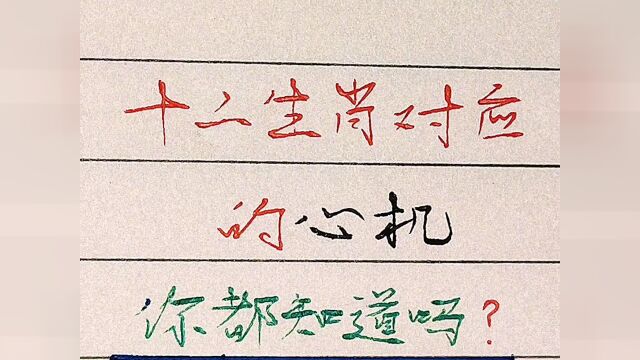 十二生肖对应
的心机
你都知道吗?